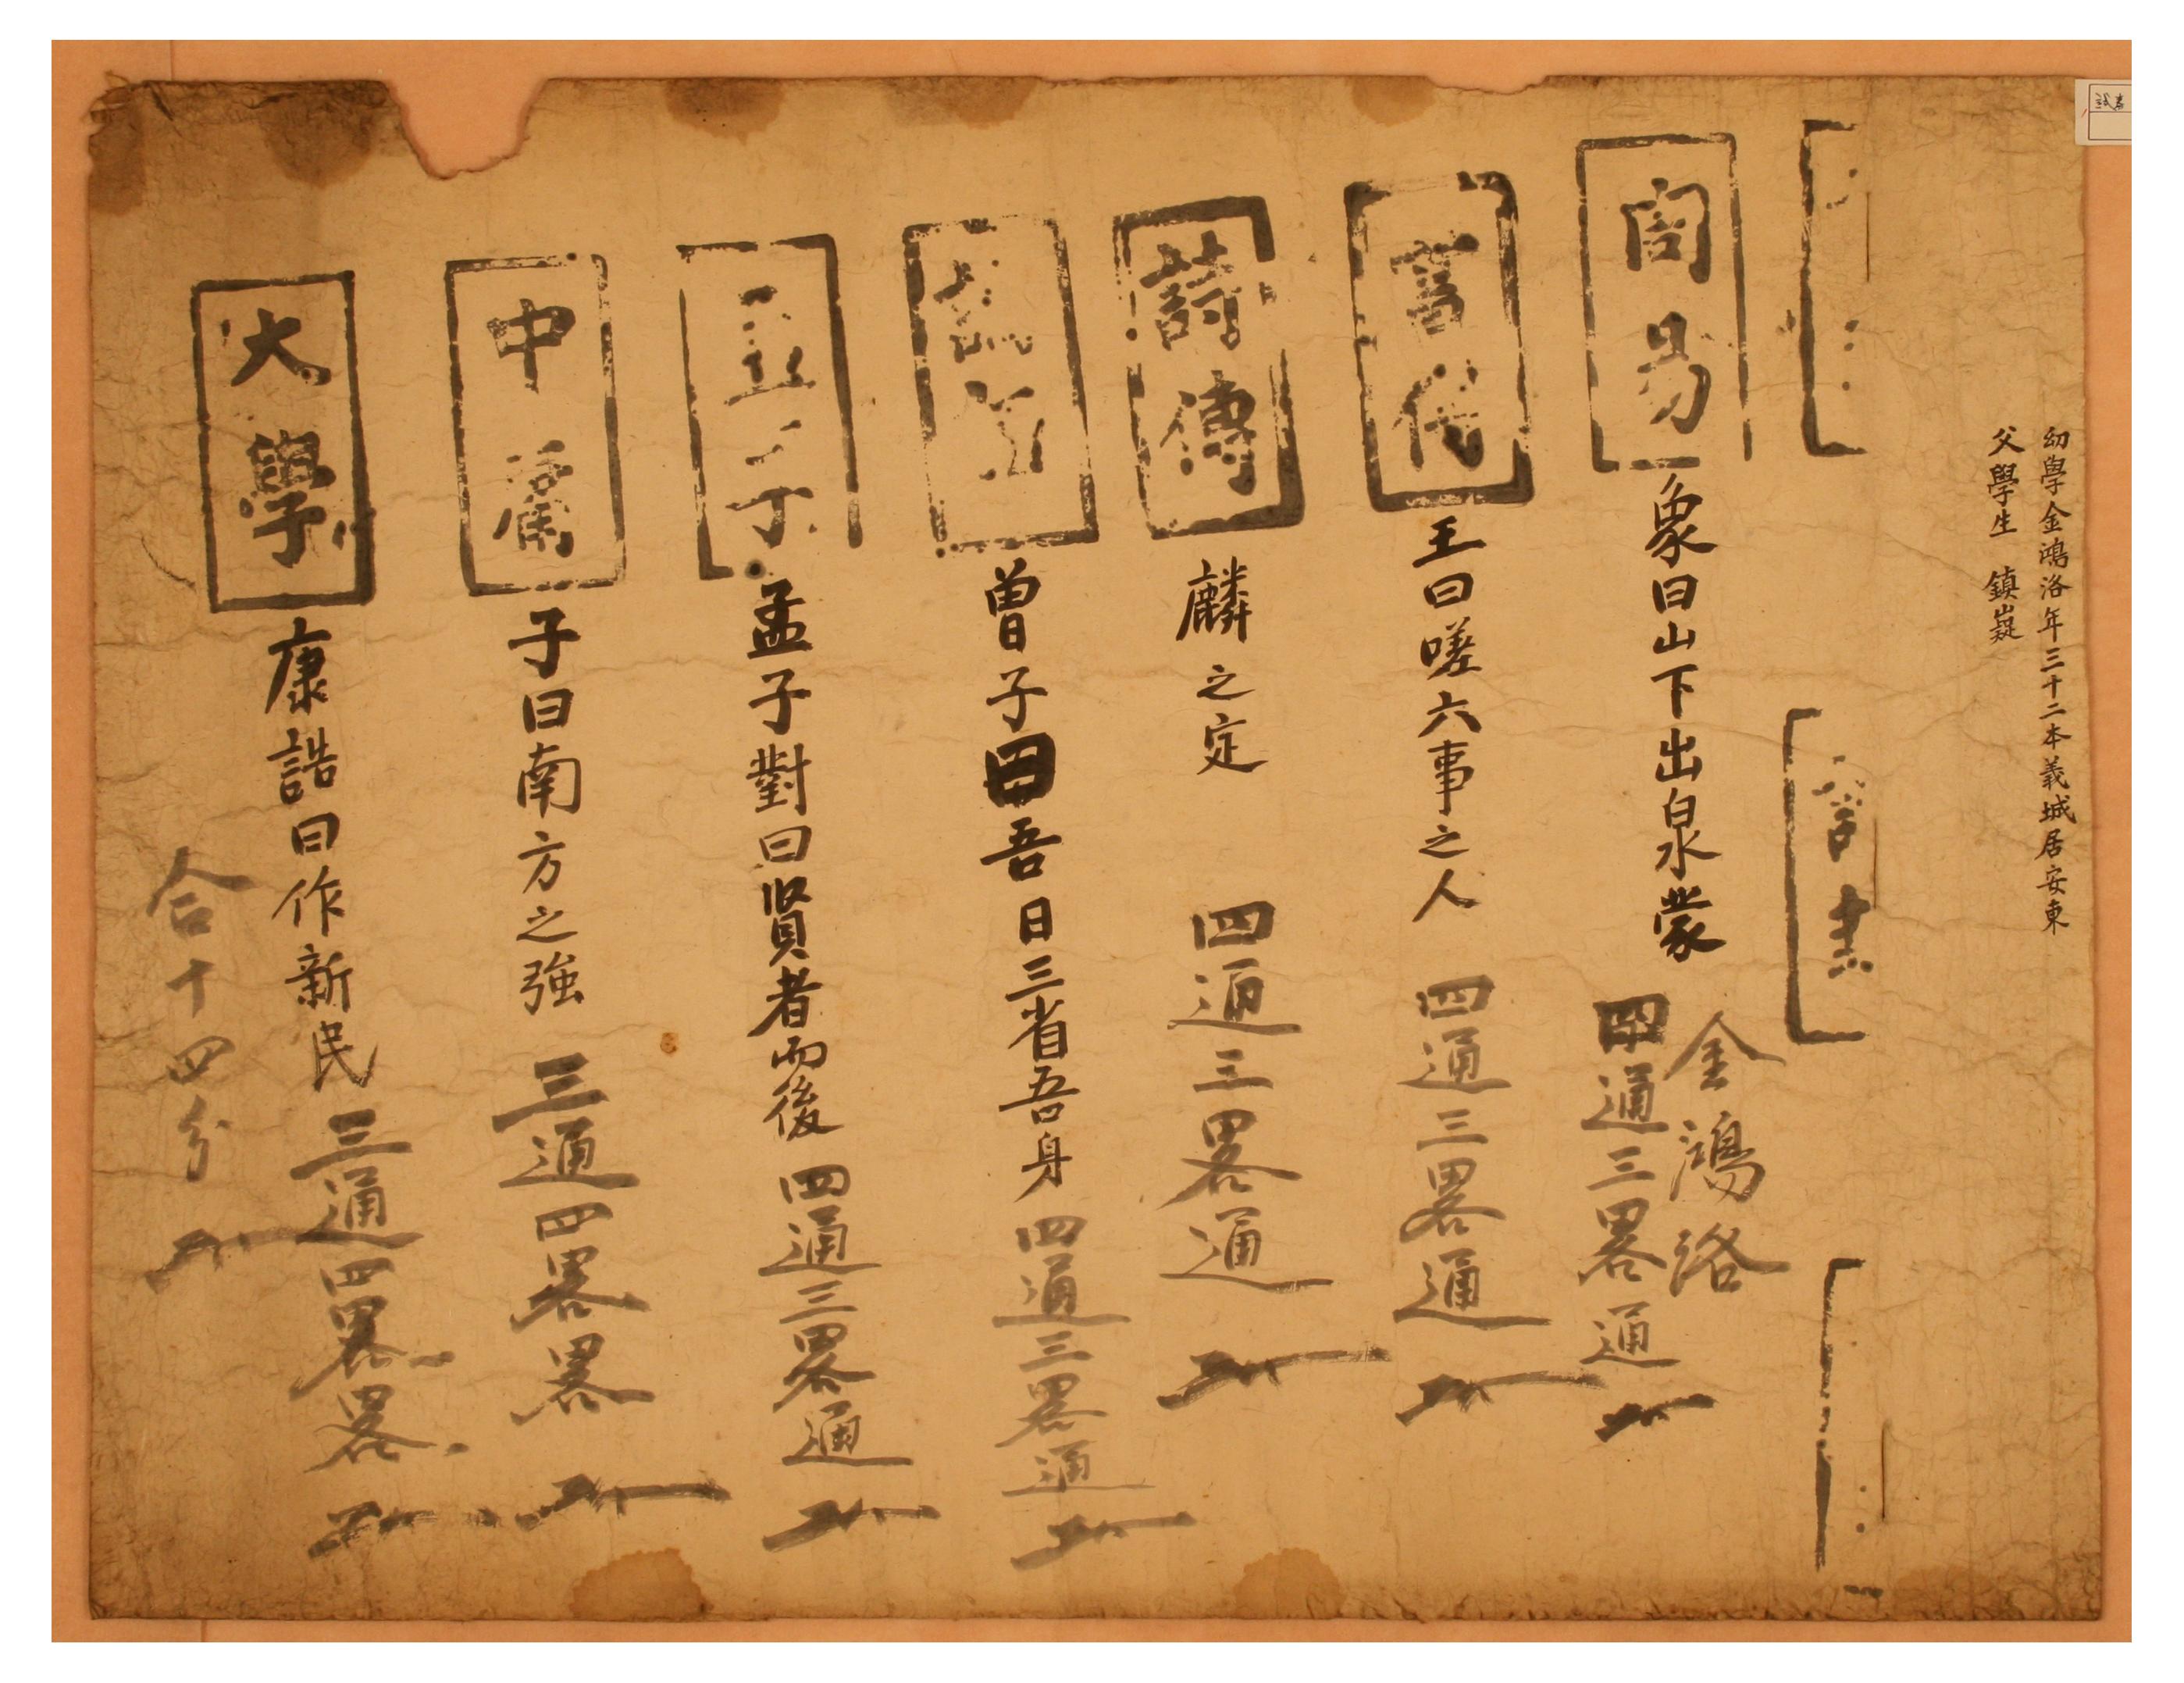 幼學金鴻洛年三十二本義城居安東
父學生 鎭嶷
金鴻洛
周易 象曰山下出泉蒙 四通三畧通
書傳 王曰嗟六事之人 四通三畧通
詩傳 麟之定 四通三畧通
曾子曰吾日三省吾身 四通三畧通
孟子 孟子對曰賢者而後 四通三畧通
中庸 子曰南方之強 三通四畧畧
大學 康誥曰作新民 三通四畧畧
合十四分